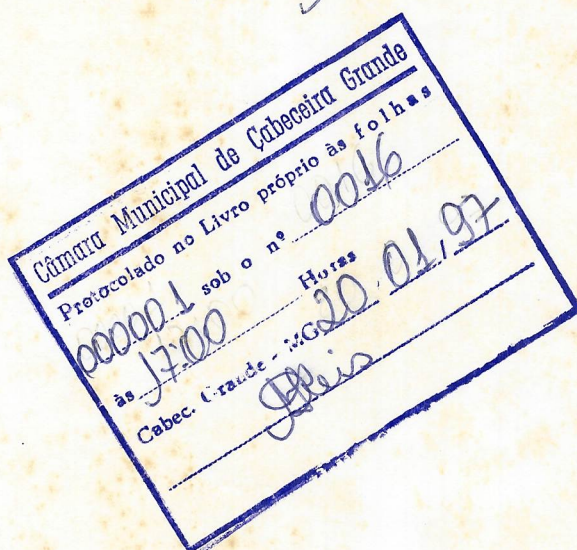 Câmara Municipal de Cabeceira Grande
Protocolado no Livro próprio às folhas
000001 sob o nº 0016
às 17:00 Horas
Cabec. Grande - MG 20.01.97